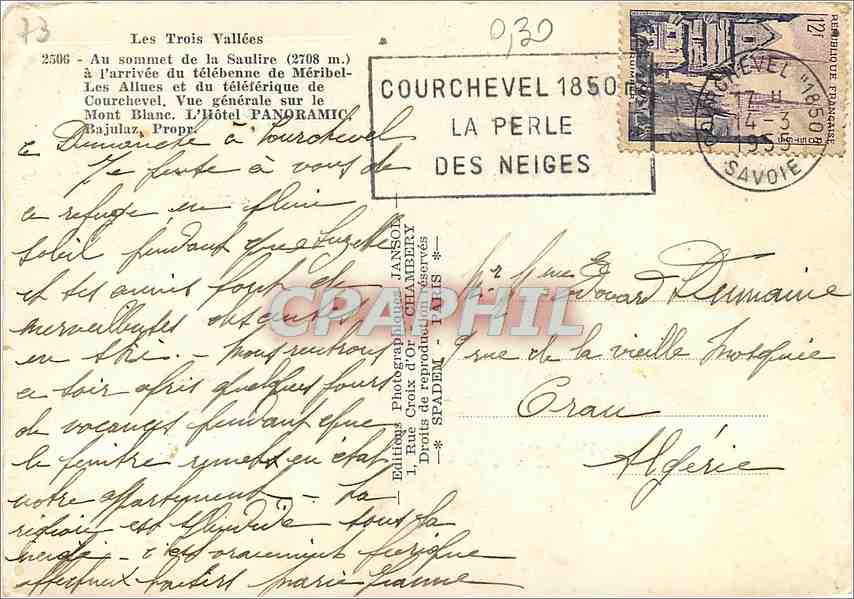 73
0,30
Les Trois Vallées
2506 - Au sommet de la Saulire (2708 m.)
à l'arrivée du télébenne de Méribel-
Les Allues et du téléférique de
Courchevel. Vue générale sur le
Mont Blanc. L'Hôtel PANORAMIC.
Bajulaz, Propr.
COURCHEVEL 1850 m
LA PERLE
DES NEIGES
12F
REPUBLIQUE FRANÇAISE
QUIMPER
COURCHEVEL "1850"
17 H
14-3
1955
SAVOIE
ce Dimanche à Courchevel
Je pense à vous de
ce refuge en plein
soleil pendant que Suzette
et ses amis font de
merveilleuses descentes
en ski. - Nous rentrons
ce soir après quelques jours
de vacances pendant que
le peintre remet en état
notre appartement - La
région est splendide sous la
neige - c'est vraiment féerique
affectueux baisers Marie Jeanne
Editions Photographiques JANSOL
1, Rue Croix d'Or - CHAMBERY
Droits de reproduction réservés
—* SPADEM - PARIS *—
CPAPHIL
Mr Mme Edouard Demaine
9 rue de la vieille Mosquée
Oran
Algérie